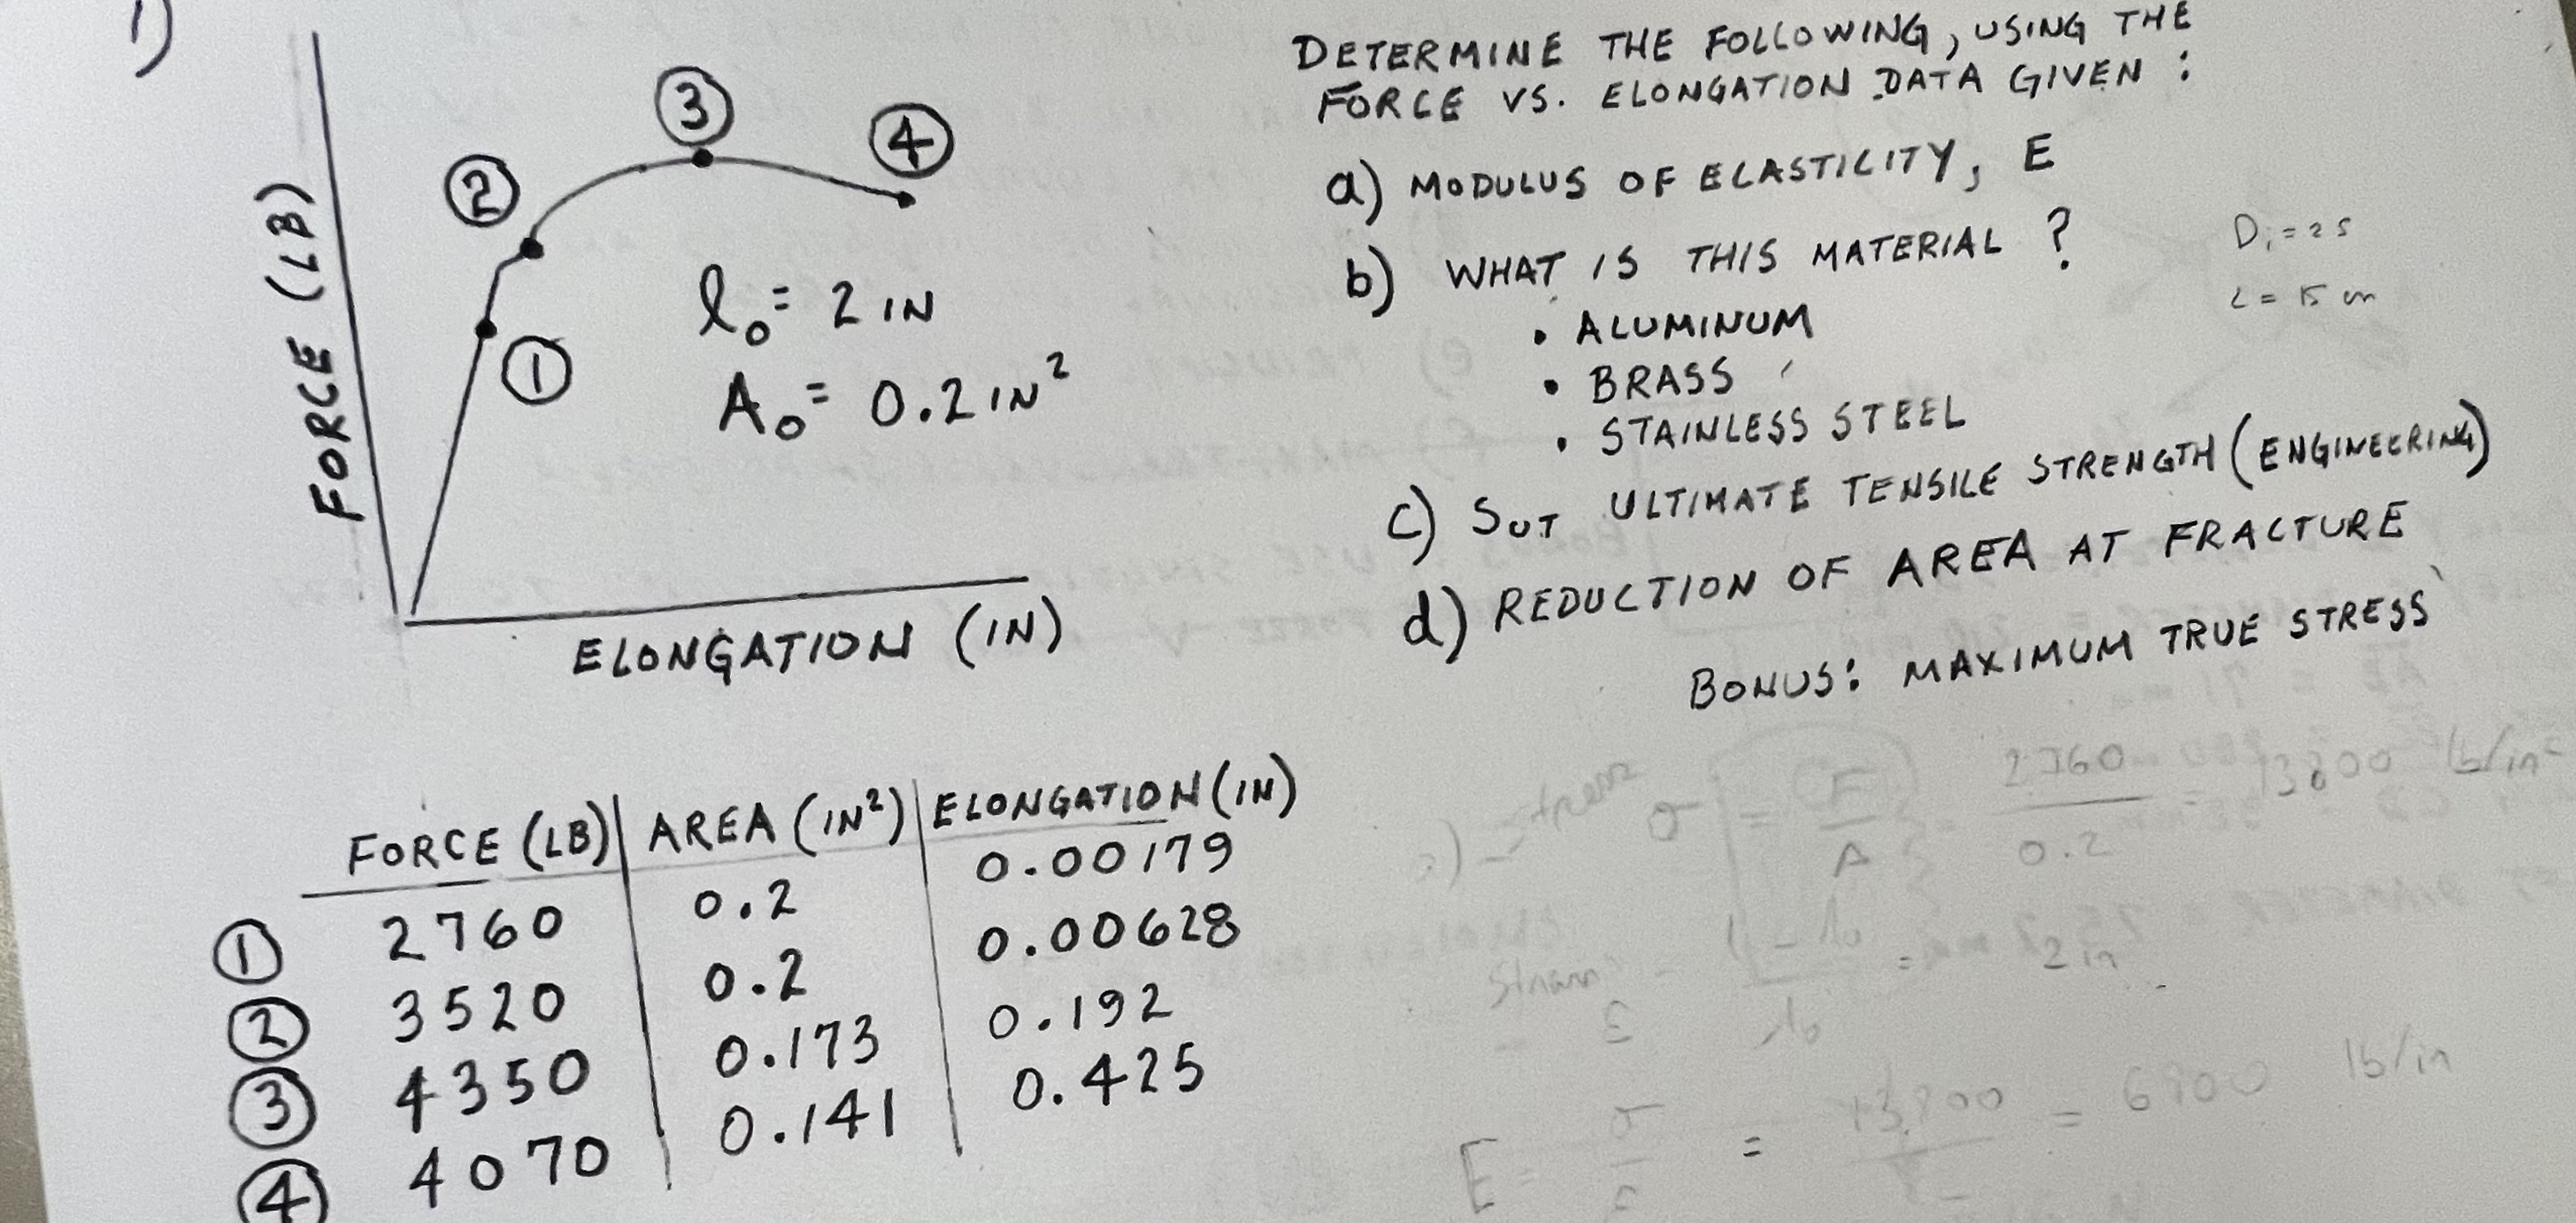 1)
FORCE (LB)
①
②
③
④
l₀ = 2 IN
A₀ = 0.2 IN²
ELONGATION (IN)
DETERMINE THE FOLLOWING, USING THE
FORCE VS. ELONGATION DATA GIVEN :
a) MODULUS OF ELASTICITY, E
b) WHAT IS THIS MATERIAL ?
• ALUMINUM
• BRASS
• STAINLESS STEEL
c) SUT ULTIMATE TENSILE STRENGTH (ENGINEERING)
d) REDUCTION OF AREA AT FRACTURE
BONUS: MAXIMUM TRUE STRESS
FORCE (LB) AREA (IN²) ELONGATION (IN)
① 2760 0.2 0.00179
② 3520 0.2 0.00628
③ 4350 0.173 0.192
④ 4070 0.141 0.425
σ = F/A = 2760/0.2 = 13800 lb/in²
ε
2 in
E = σ/ε = 13800 = 6900 lb/in